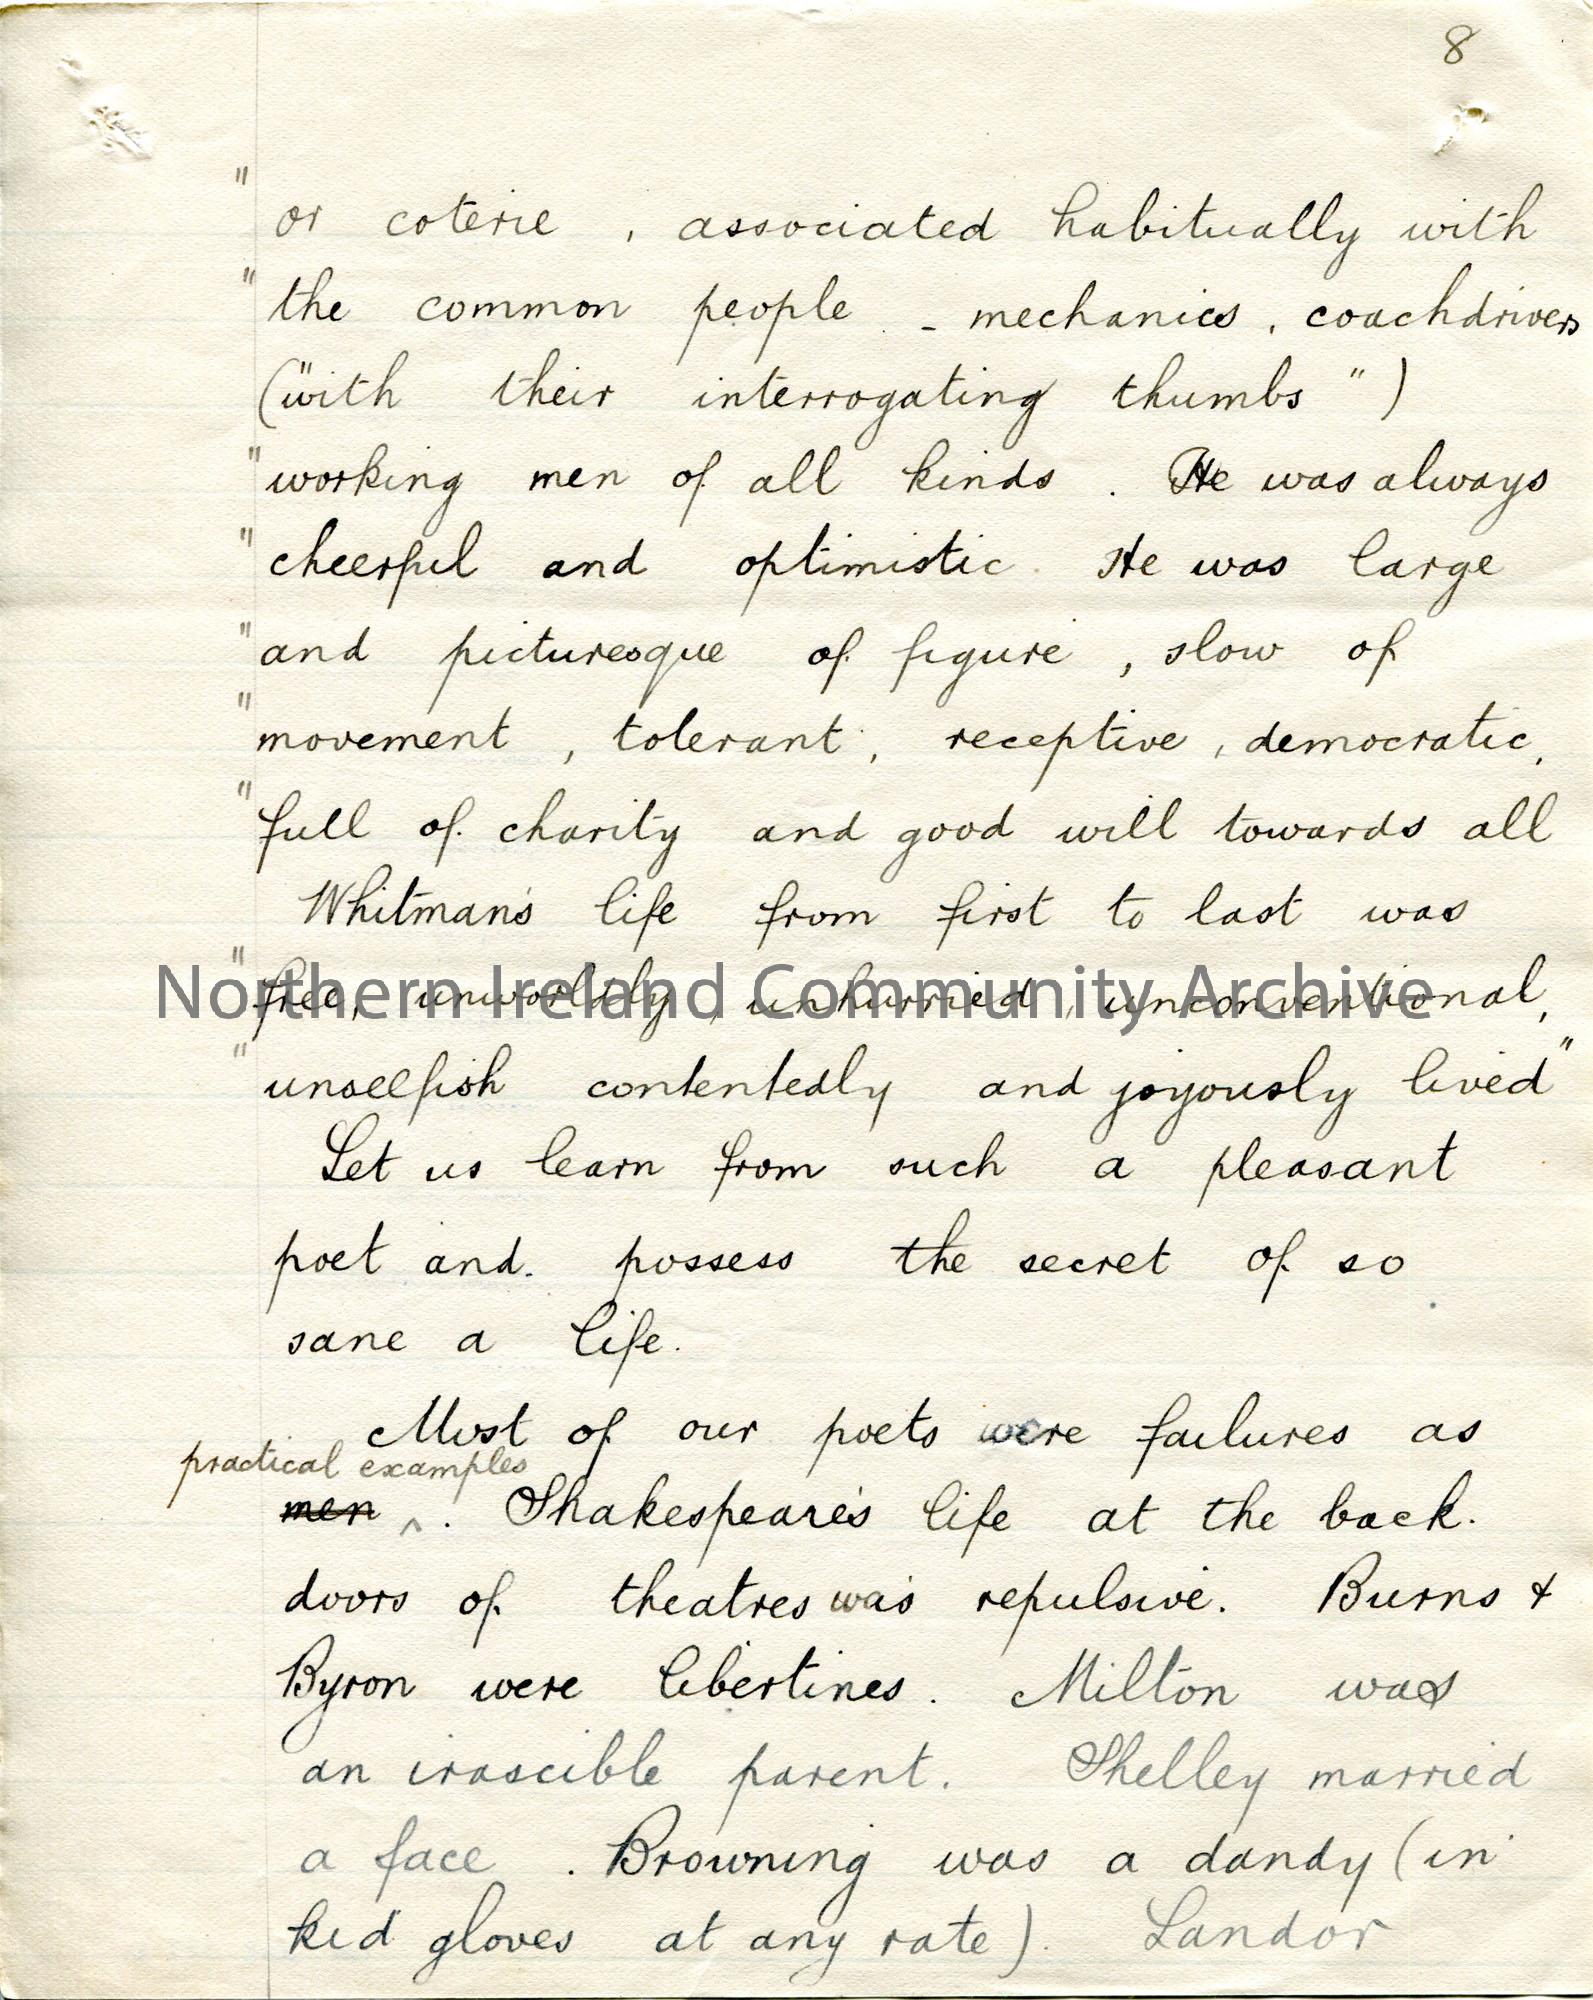 8
" or coterie , associated habitually with
" the common people - mechanics , coachdrivers
("with their interrogating thumbs")
" working men of all kinds . He was always
" cheerful and optimistic . He was large
" and picturesque of figure , slow of
" movement , tolerant , receptive , democratic ,
" full of charity and good will towards all
Whitman's life from first to last was
" free , unworldly , unhurried , unconventional ,
Northern Ireland Community Archive
" unselfish contentedly and joyously lived "
Let us learn from such a pleasant
poet and possess the secret of so
sane a life .
Most of our poets were failures as
practical examples
men ^ . Shakespeare's life at the back
doors of theatres was repulsive . Burns &
Byron were libertines . Milton was
an irascible parent . Shelley married
a face . Browning was a dandy (in
kid gloves at any rate) . Landor